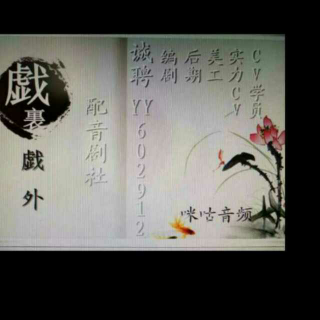 戯裏戯外
配音剧社
诚聘 YY602912
编剧
后期
美工
实力CV
CV学员
咪咕音频